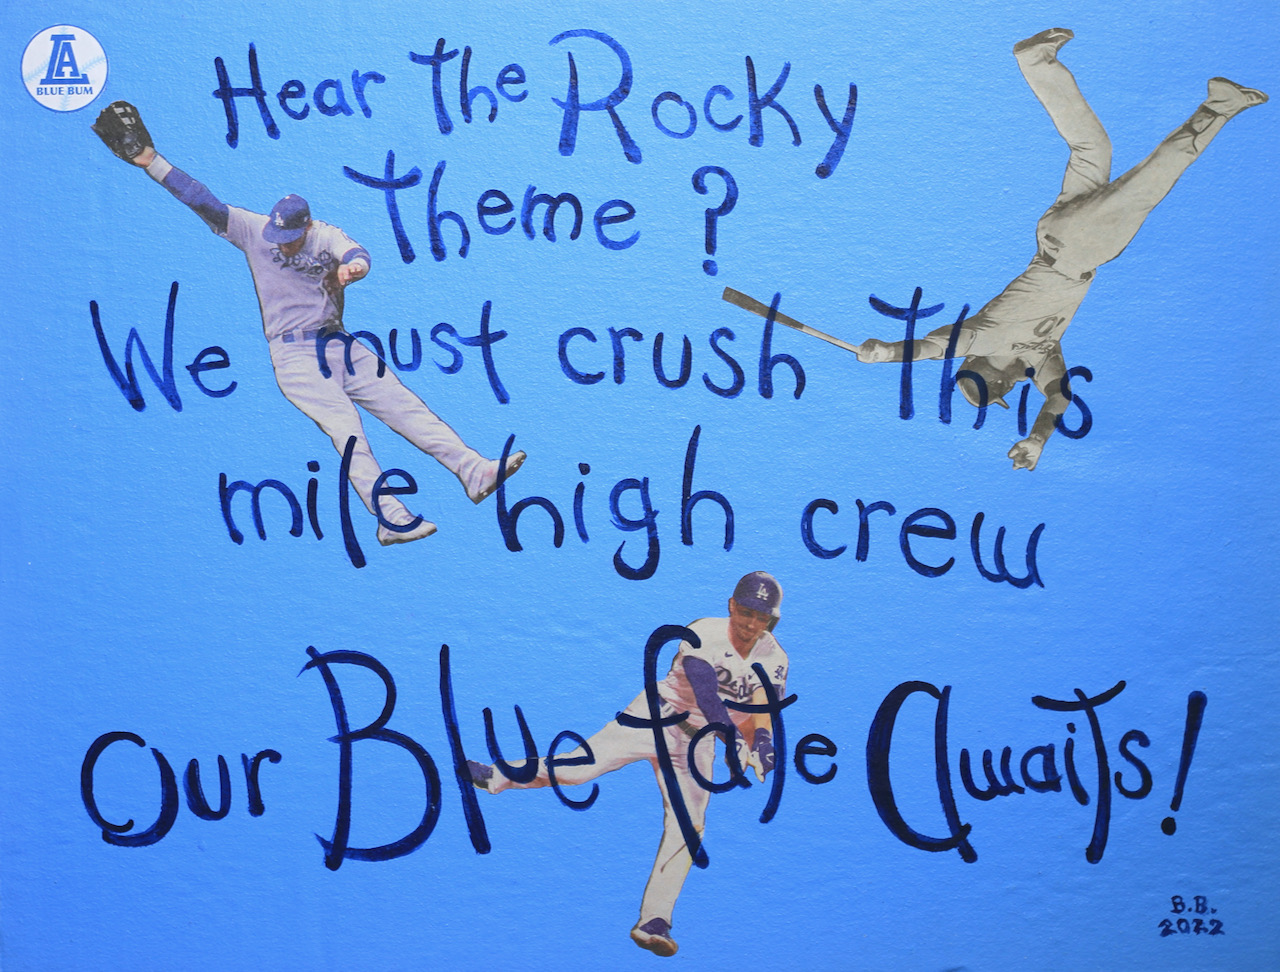 LA
BLUE BUM
Hear the Rocky
Theme?
We must crush this
mile high crew
Our Blue fate Awaits!
B.B.
2022